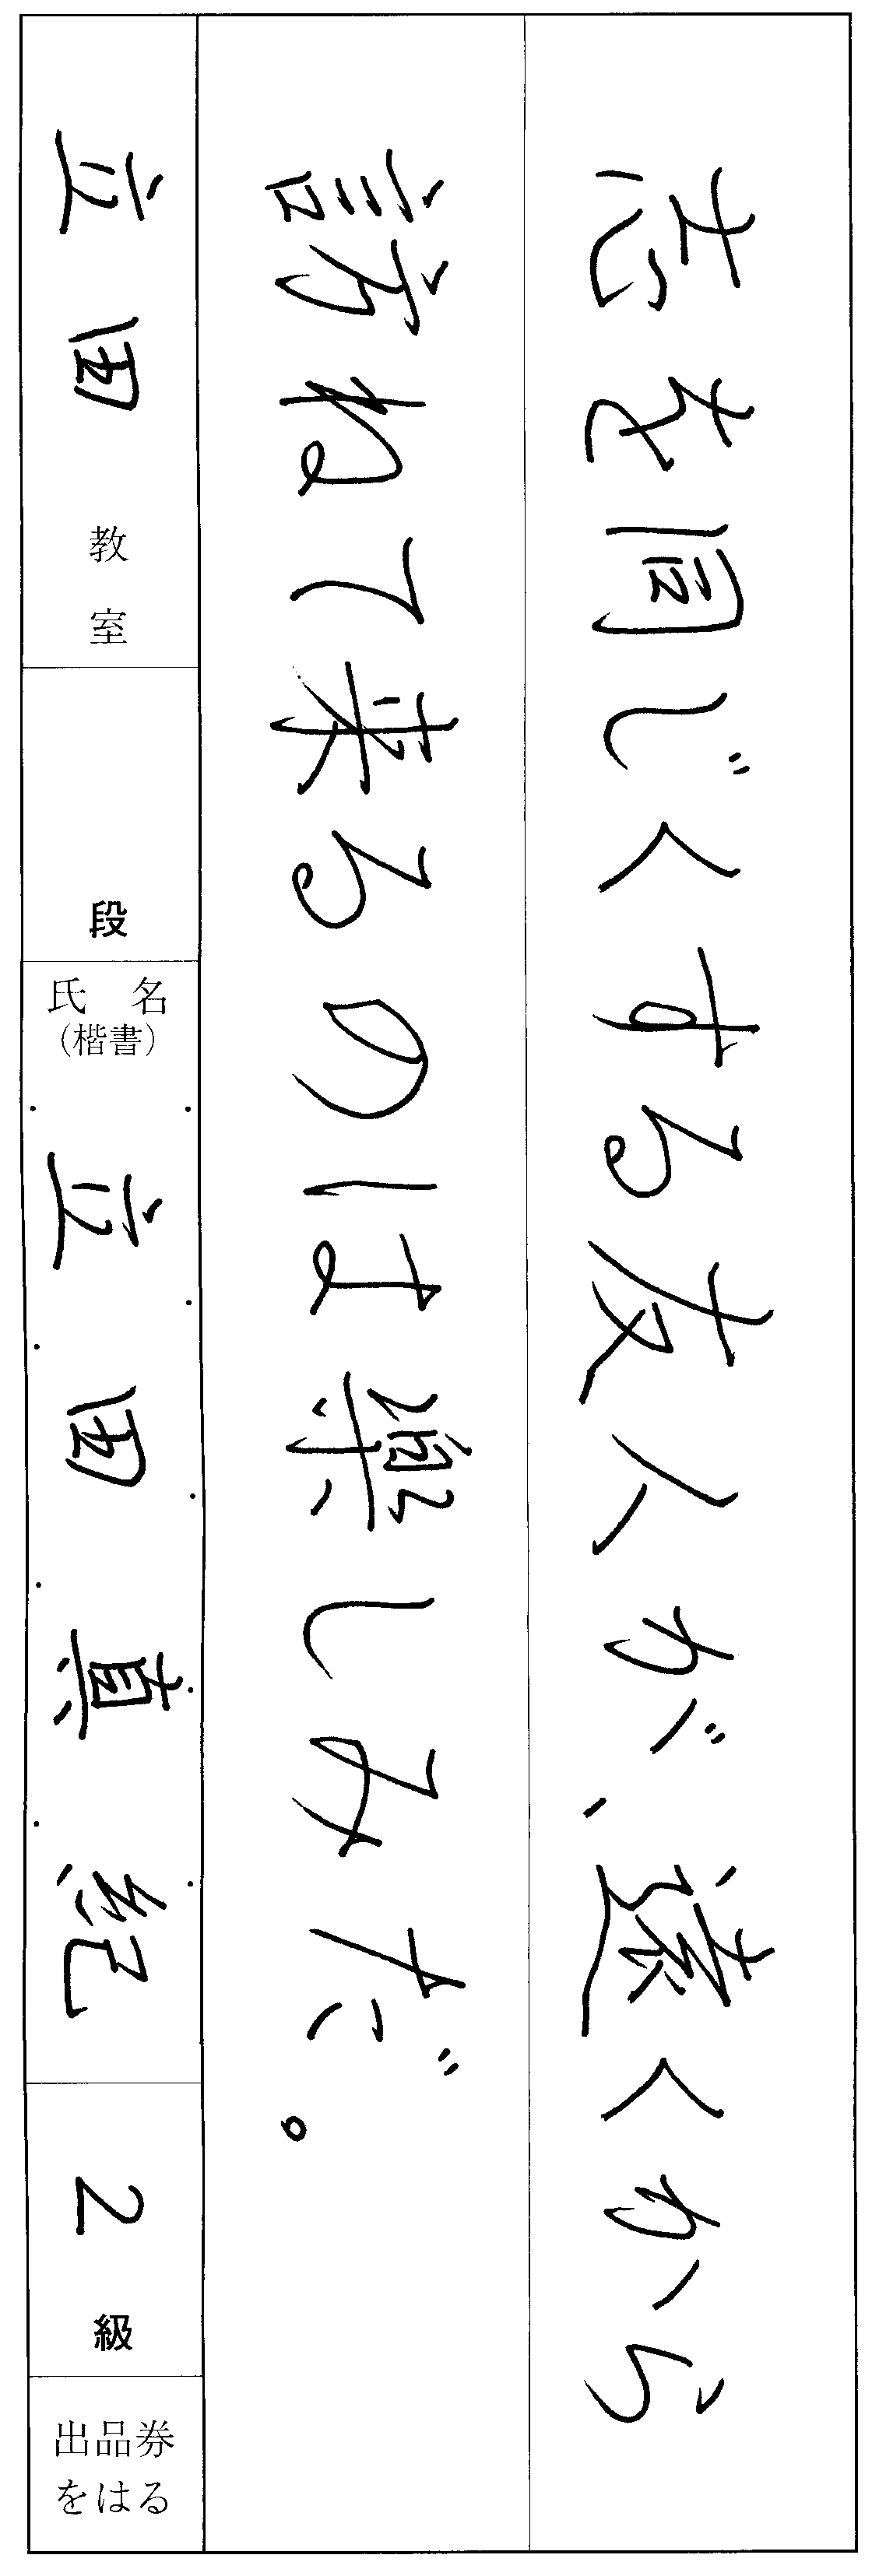 志を同じくする友人が、遠くから
訪ねて来るのは楽しみだ。
立田 教室
段
氏名
(楷書)
立田真紀
2 級
出品券
をはる